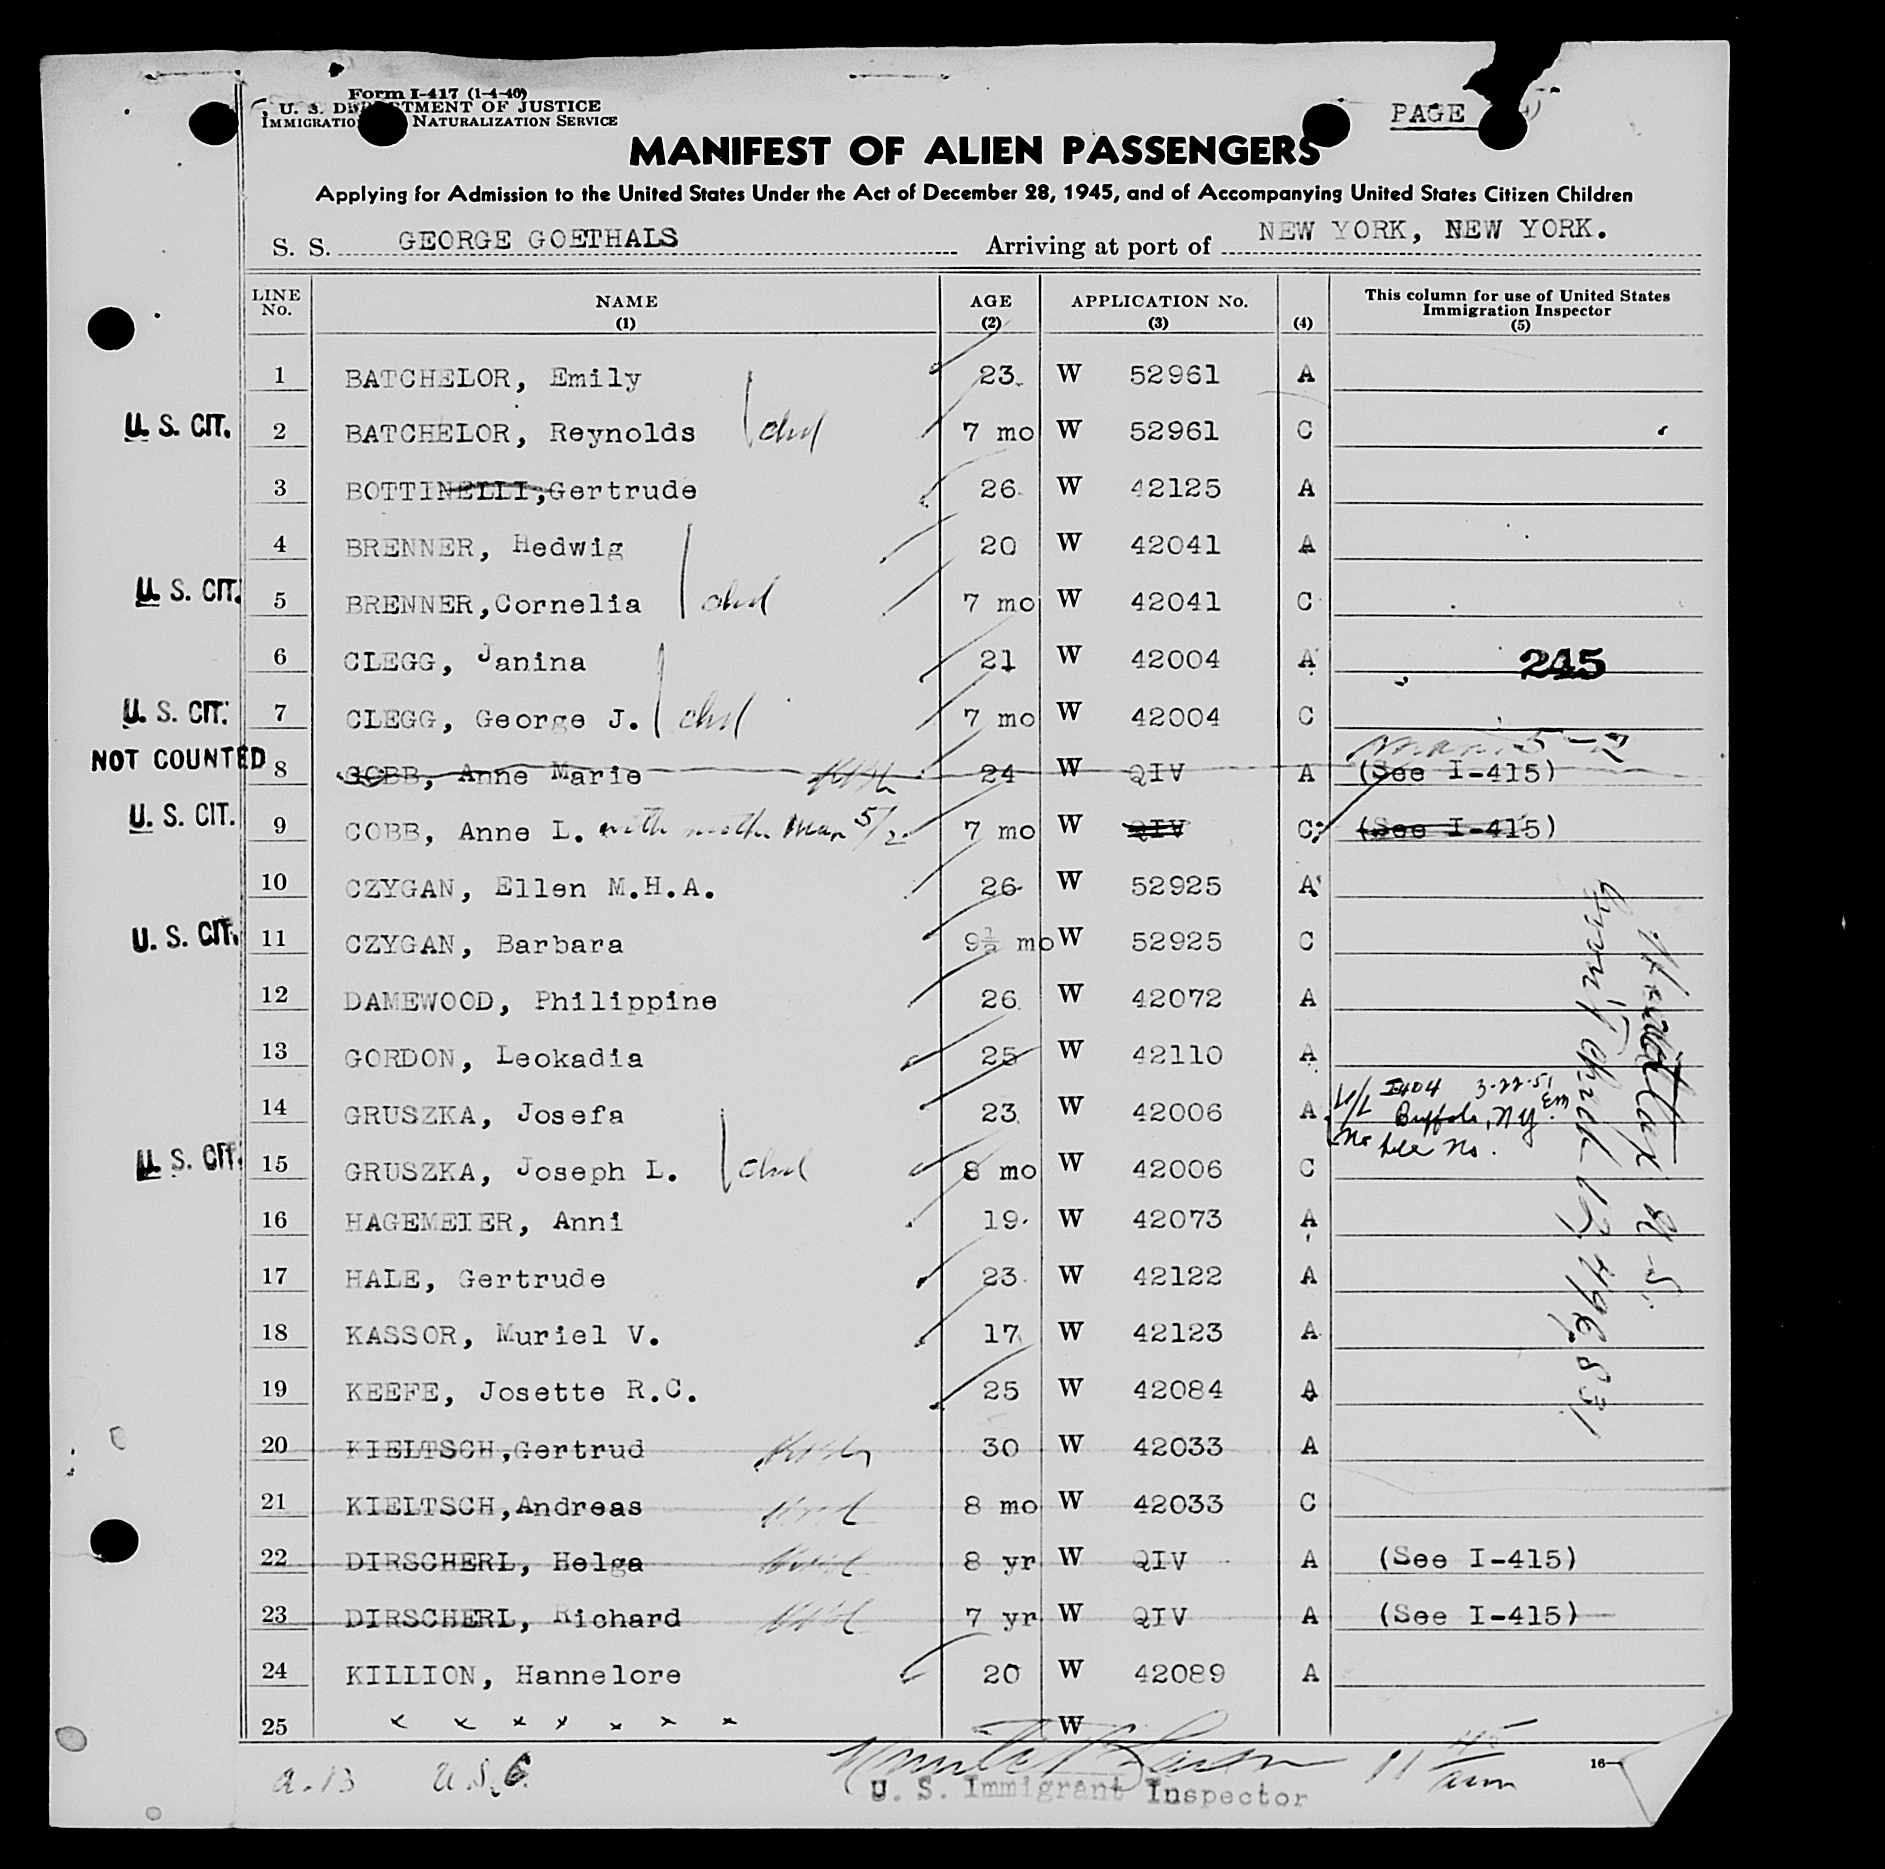 Form I-417 (1-4-46)
U. S. DEPARTMENT OF JUSTICE
IMMIGRATION NATURALIZATION SERVICE
PAGE
MANIFEST OF ALIEN PASSENGERS
Applying for Admission to the United States Under the Act of December 28, 1945, and of Accompanying United States Citizen Children
S. S. GEORGE GOETHALS Arriving at port of NEW YORK, NEW YORK.
LINE No. NAME (1) AGE (2) APPLICATION No. (3) (4) This column for use of United States Immigration Inspector (5)
1 BATCHELOR, Emily 23 W 52961 A
U. S. CIT. 2 BATCHELOR, Reynolds 7 mo W 52961 C
3 BOTTINELLI,Gertrude 26 W 42125 A
4 BRENNER, Hedwig 20 W 42041 A
U. S. CIT. 5 BRENNER,Cornelia 7 mo W 42041 C
6 CLEGG, Janina 21 W 42004 A 245
U. S. CIT. 7 CLEGG, George J. 7 mo W 42004 C
NOT COUNTED 8 COBB, Anne Marie 24 W QIV A (See I-415)
U. S. CIT. 9 COBB, Anne L. with mother Man 5/2 7 mo W QIV C (See I-415)
10 CZYGAN, Ellen M.H.A. 26 W 52925 A
U. S. CIT. 11 CZYGAN, Barbara 9½ mo W 52925 C
12 DAMEWOOD, Philippine 26 W 42072 A
13 GORDON, Leokadia 25 W 42110 A
14 GRUSZKA, Josefa 23 W 42006 A V/L I404 3-22-51 Buffalo, NY Em
No file No.
U. S. CIT. 15 GRUSZKA, Joseph L. 8 mo W 42006 C
16 HAGEMEIER, Anni 19 W 42073 A
17 HALE, Gertrude 23 W 42122 A
18 KASSOR, Muriel V. 17 W 42123 A
19 KEEFE, Josette R.C. 25 W 42084 A
20 KIELTSCH,Gertrud 30 W 42033 A
21 KIELTSCH,Andreas 8 mo W 42033 C
22 DIRSCHERL, Helga 8 yr W QIV A (See I-415)
23 DIRSCHERL, Richard 7 yr W QIV A (See I-415)
24 KILLION, Hannelore 20 W 42089 A
25 x x x x x x x W
a.13 U.S.C.
U. S. Immigrant Inspector
11 45 am
16—